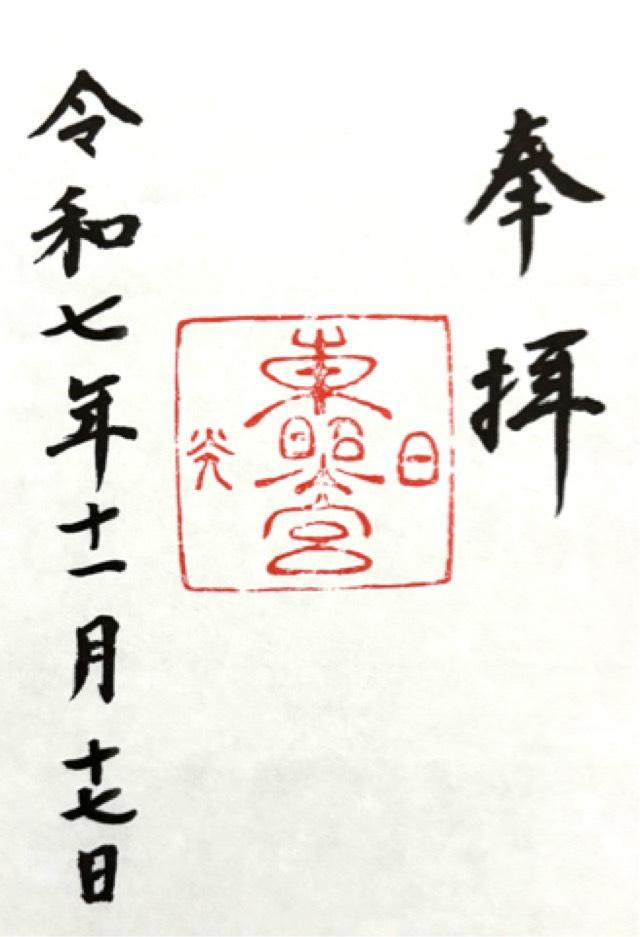 奉拝
日光
東照宮
令和七年十一月十七日